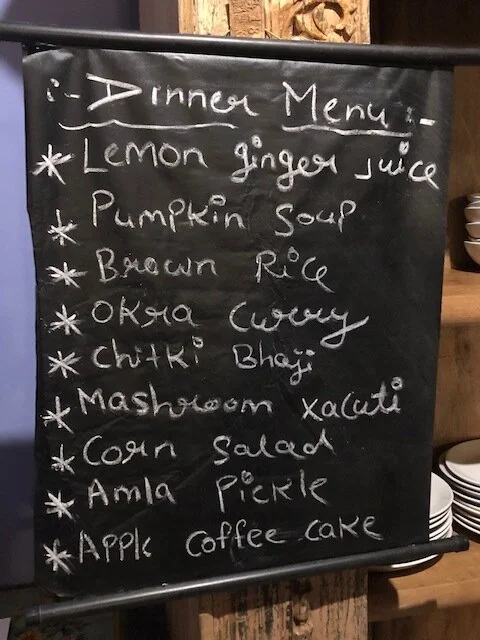 :- Dinner Menu :-
* Lemon ginger Juice
* Pumpkin Soup
* Brown Rice
* Okra Curry
* Chitki Bhaji
* Mashroom Xacuti
* Corn Salad
* Amla Pickle
* Apple Coffee Cake